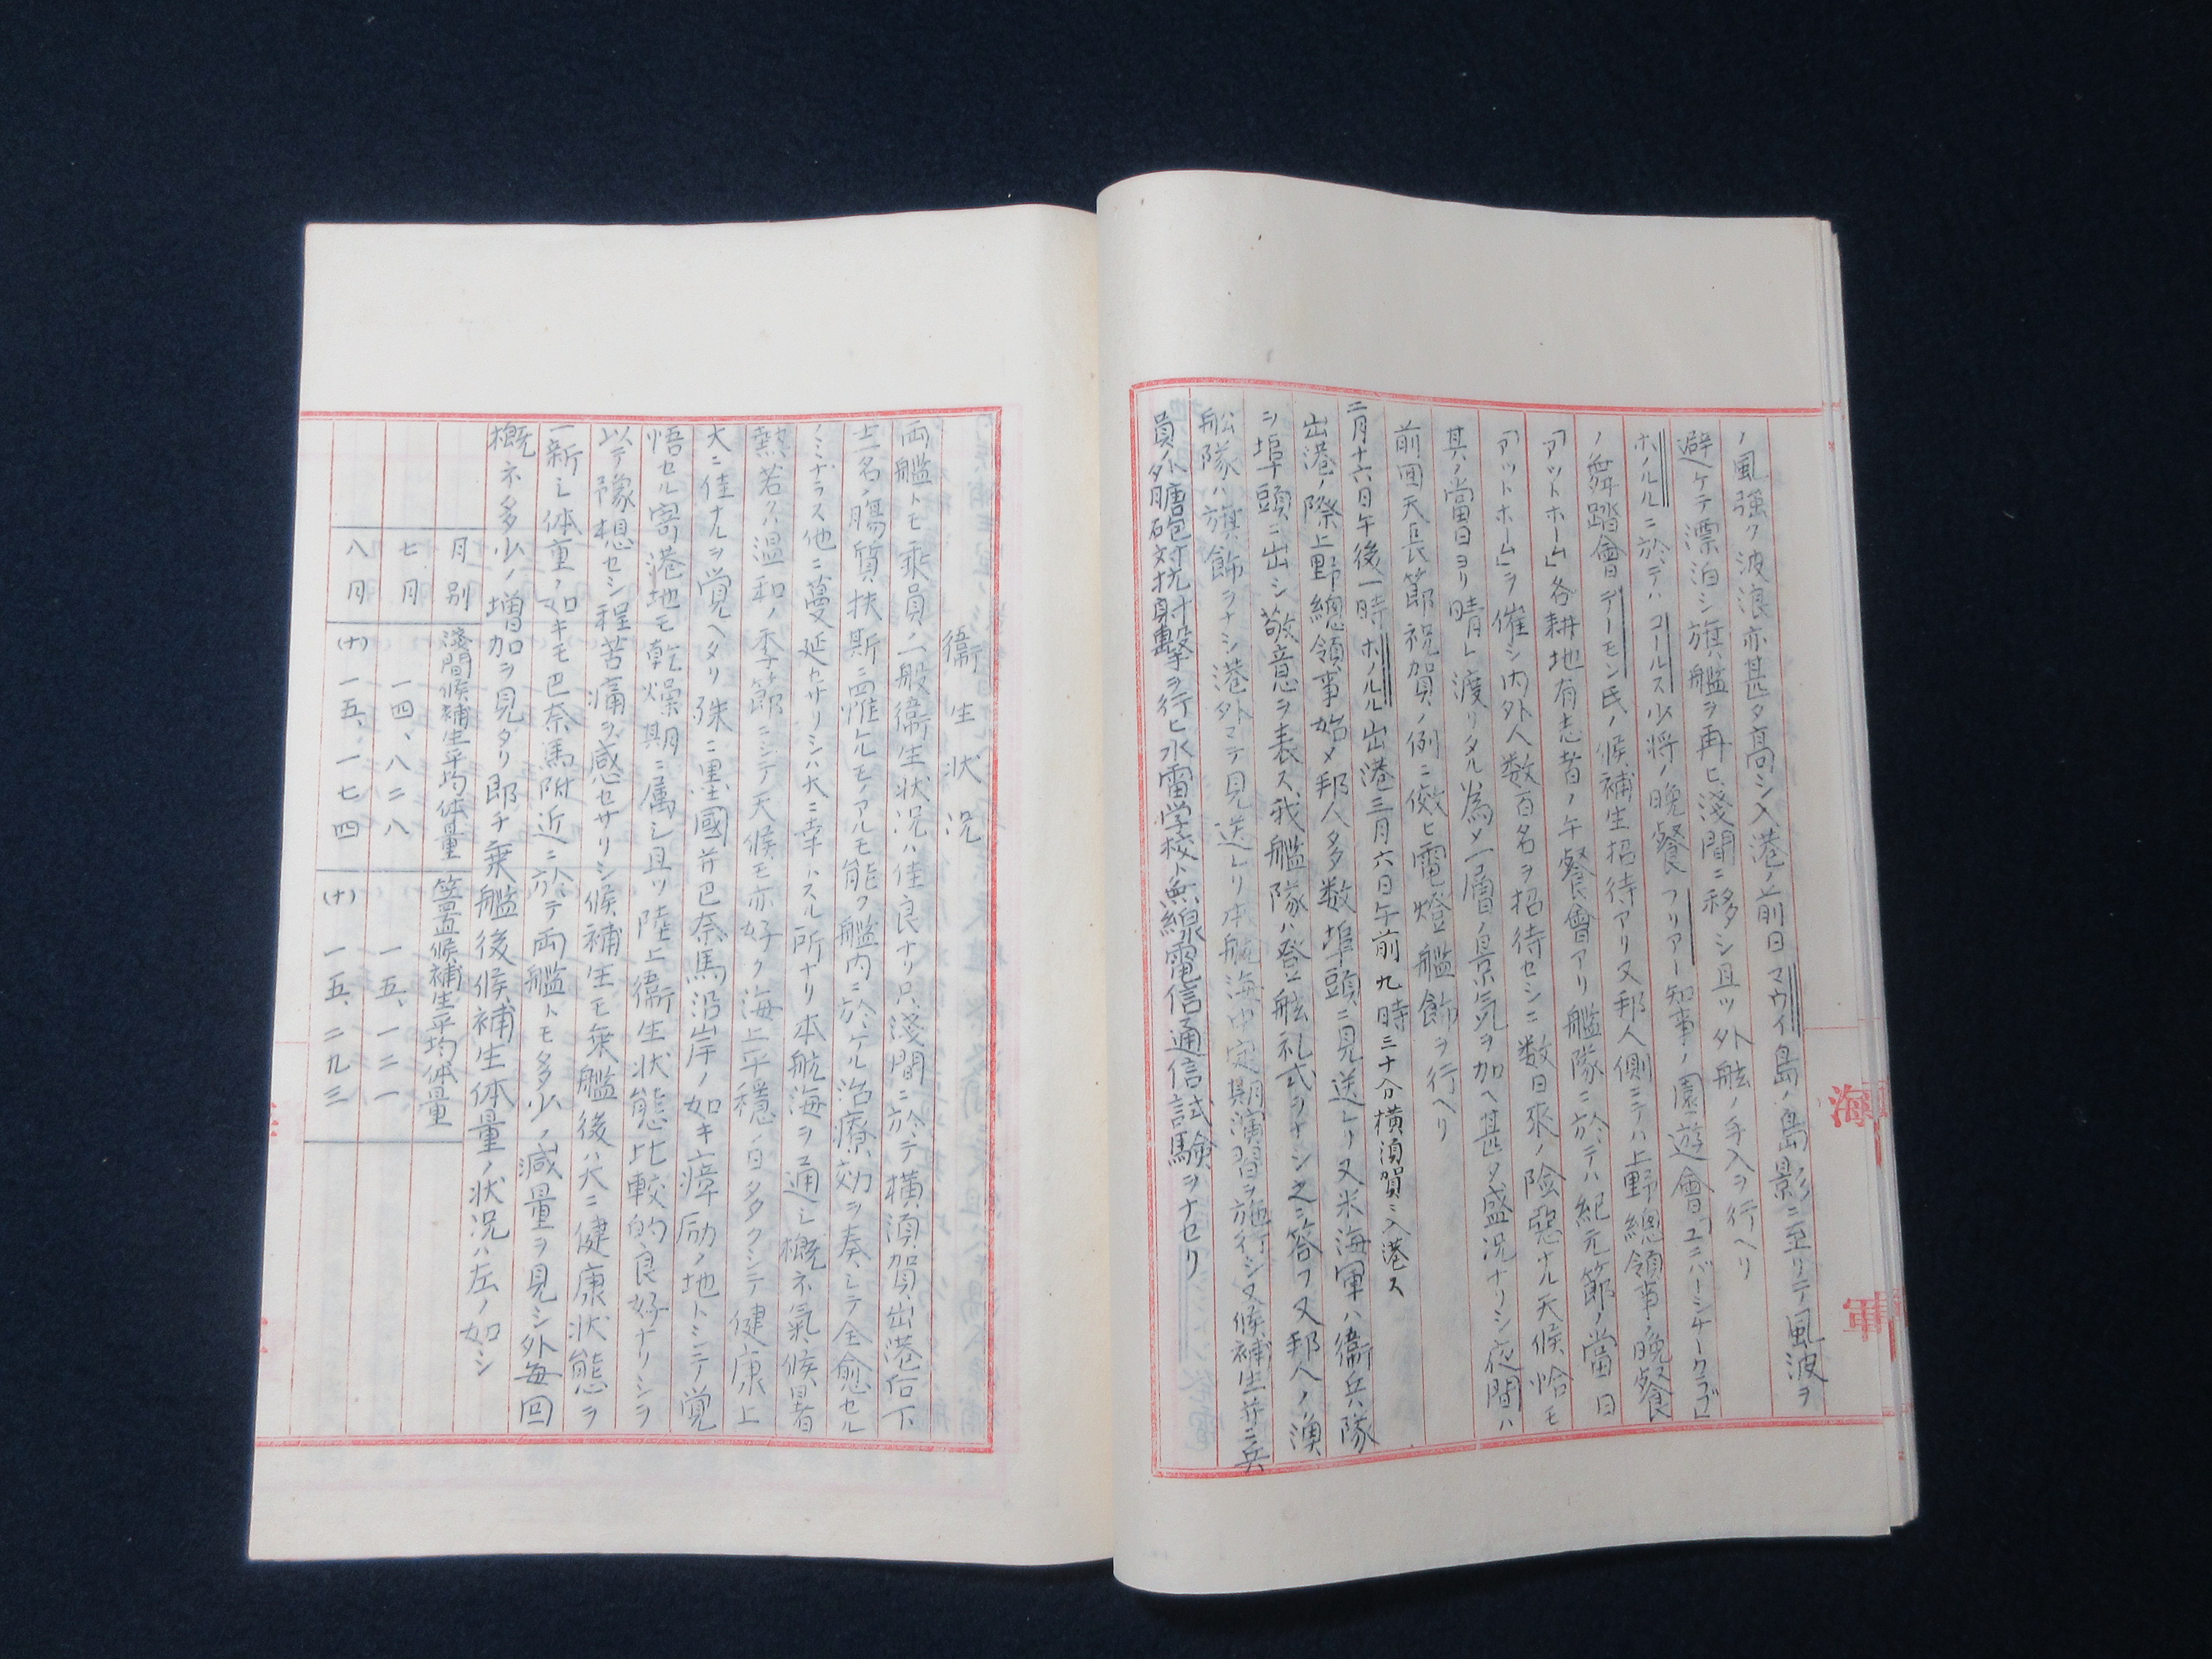 ノ風強ク波浪亦甚タ高シ入港ノ前日マウイ島ノ島影ニ至リテ風波ヲ
避ケテ漂泊シ旗艦ヲ再ヒ淺間ニ移シ且ツ外舷ノ手入ヲ行ヘリ
ホノルルニ於テハコールス少将ノ晩餐フリアー知事ノ園遊會「ユニバーシチークラブ」
ノ舞踏會デーモン氏ノ候補生招待アリ又邦人側ニテハ上野總領事ノ晩餐
「アットホーム」各耕地有志者ノ午餐會アリ艦隊ニ於テハ紀元節ノ當日
「アットホーム」ヲ催シ内外人数百名ヲ招待セシニ数日来ノ険惡ナル天候恰モ
其ノ當日ヨリ晴レ渡リタル為メ一層ノ景気ヲ加ヘ甚タ盛況ナリシ夜間ハ
前回天長節祝賀ノ例ニ倣ヒ電燈艦飾ヲ行ヘリ
二月十六日午後一時ホノルル出港三月六日午前九時三十分横須賀ニ入港ス
出港ノ際上野總領事始メ邦人多数埠頭ニ見送レリ又米海軍ハ衞兵隊
ヲ埠頭ニ出シ敬意ヲ表ス我艦隊ハ登舷礼式ヲナシ之ニ答フ又邦人ノ漁
舩隊ハ旗飾ヲナシ港外マテ見送レリ本航海中定期演習ヲ施行シ又候補生并ニ兵
員ノ外膅砲対抗射擊ヲ行ヒ水雷学校ト無線電信通信試験ヲナセリ
衞生状况
両艦トモ乗員ノ一般衞生状况ハ佳良ナリ只淺間ニ於テ横須賀出港后下
士名ノ膓質扶斯ニ罹ルモノアルモ能ク艦内ニ於ケル治療効ヲ奏シテ全愈セル
ノミナラス他ニ蔓延セサリシハ大ニ幸トスル所ナリ本航海ヲ通シ概ネ氣候暑
熱若クハ温和ノ季節ニシテ天候モ亦好ク海上平穩ノ日多クシテ健康上
大ニ佳ナルヲ覚ヘタリ殊ニ墨國并巴奈馬沿岸ノ如キ瘴励ノ地トシテ覚
悟セル寄港地モ乾燥期ニ属シ且ツ陸上衞生状態比較的良好ナリシヲ
以テ豫想セシ程苦痛ヲ感セサリシ候補生モ乗艦後ハ大ニ健康状態ヲ
一新シ体重ノ如キモ巴奈馬附近ニ於テ両艦トモ多少ノ減量ヲ見シ外毎回
概ネ多少ノ増加ヲ見タリ即チ乗艦後候補生体量ノ状况ハ左ノ如シ
月別 淺間候補生平均体量 笠置候補生平均体量
七月 一四、八二八 一五、一二一
八月 (十)一五、一七四 (十)一五、二九三
海軍